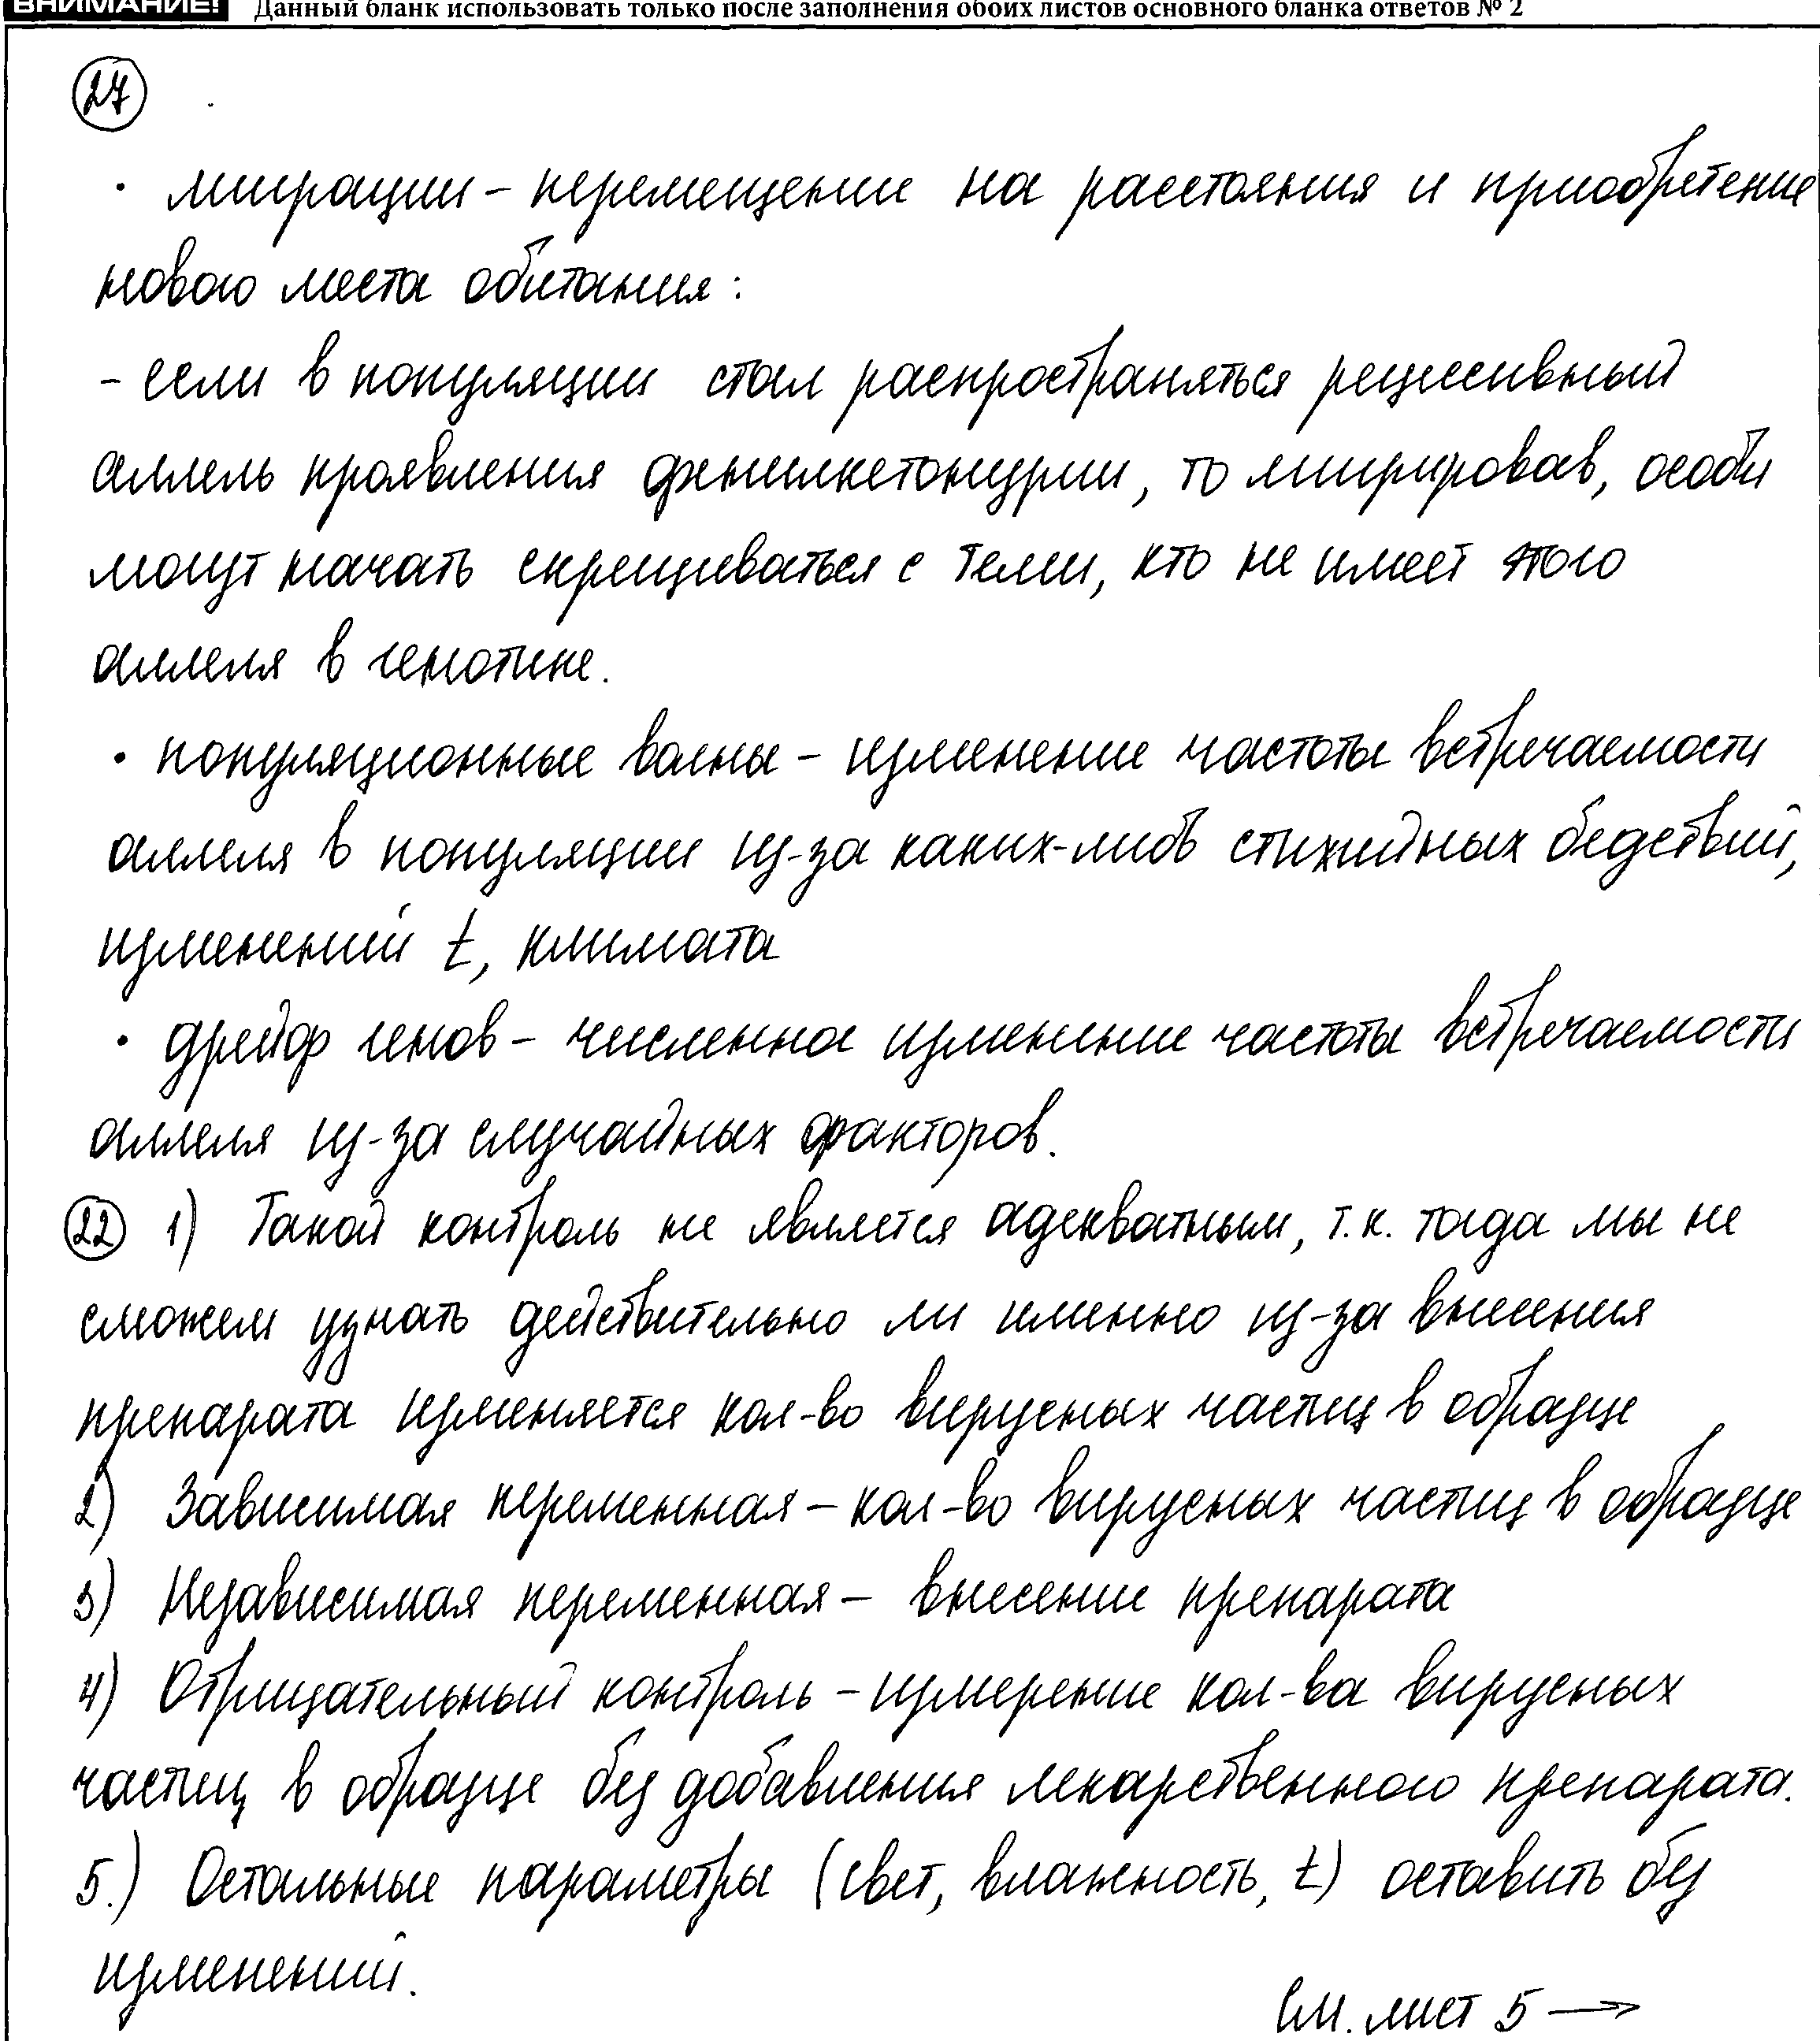 ВНИМАНИЕ! Данный бланк использовать только после заполнения обоих листов основного бланка ответов № 2
27
· миграции - перемещение на расстояния и приобретение
нового места обитания:
- если в популяции стал распространяться рецессивный
аллель проявления фенилкетонурии, то мигрировав, особи
могут начать скрещиваться с теми, кто не имеет этого
аллеля в генотипе.
· популяционные волны - изменение частоты встречаемости
аллеля в популяции из-за каких-либо стихийных бедствий,
изменений t, климата
· дрейф генов - численное изменение частоты встречаемости
аллеля из-за случайных факторов.
22 1) Такой контроль не является адекватным, т.к. тогда мы не
сможем узнать действительно ли именно из-за внесения
препарата изменяется кол-во вирусных частиц в образце
2) Зависимая переменная - кол-во вирусных частиц в образце
3) Независимая переменная - внесение препарата
4) Отрицательный контроль - измерение кол-ва вирусных
частиц в образце без добавления лекарственного препарата.
5.) Остальные параметры (свет, влажность, t) оставить без
изменений.
См. лист 5 →